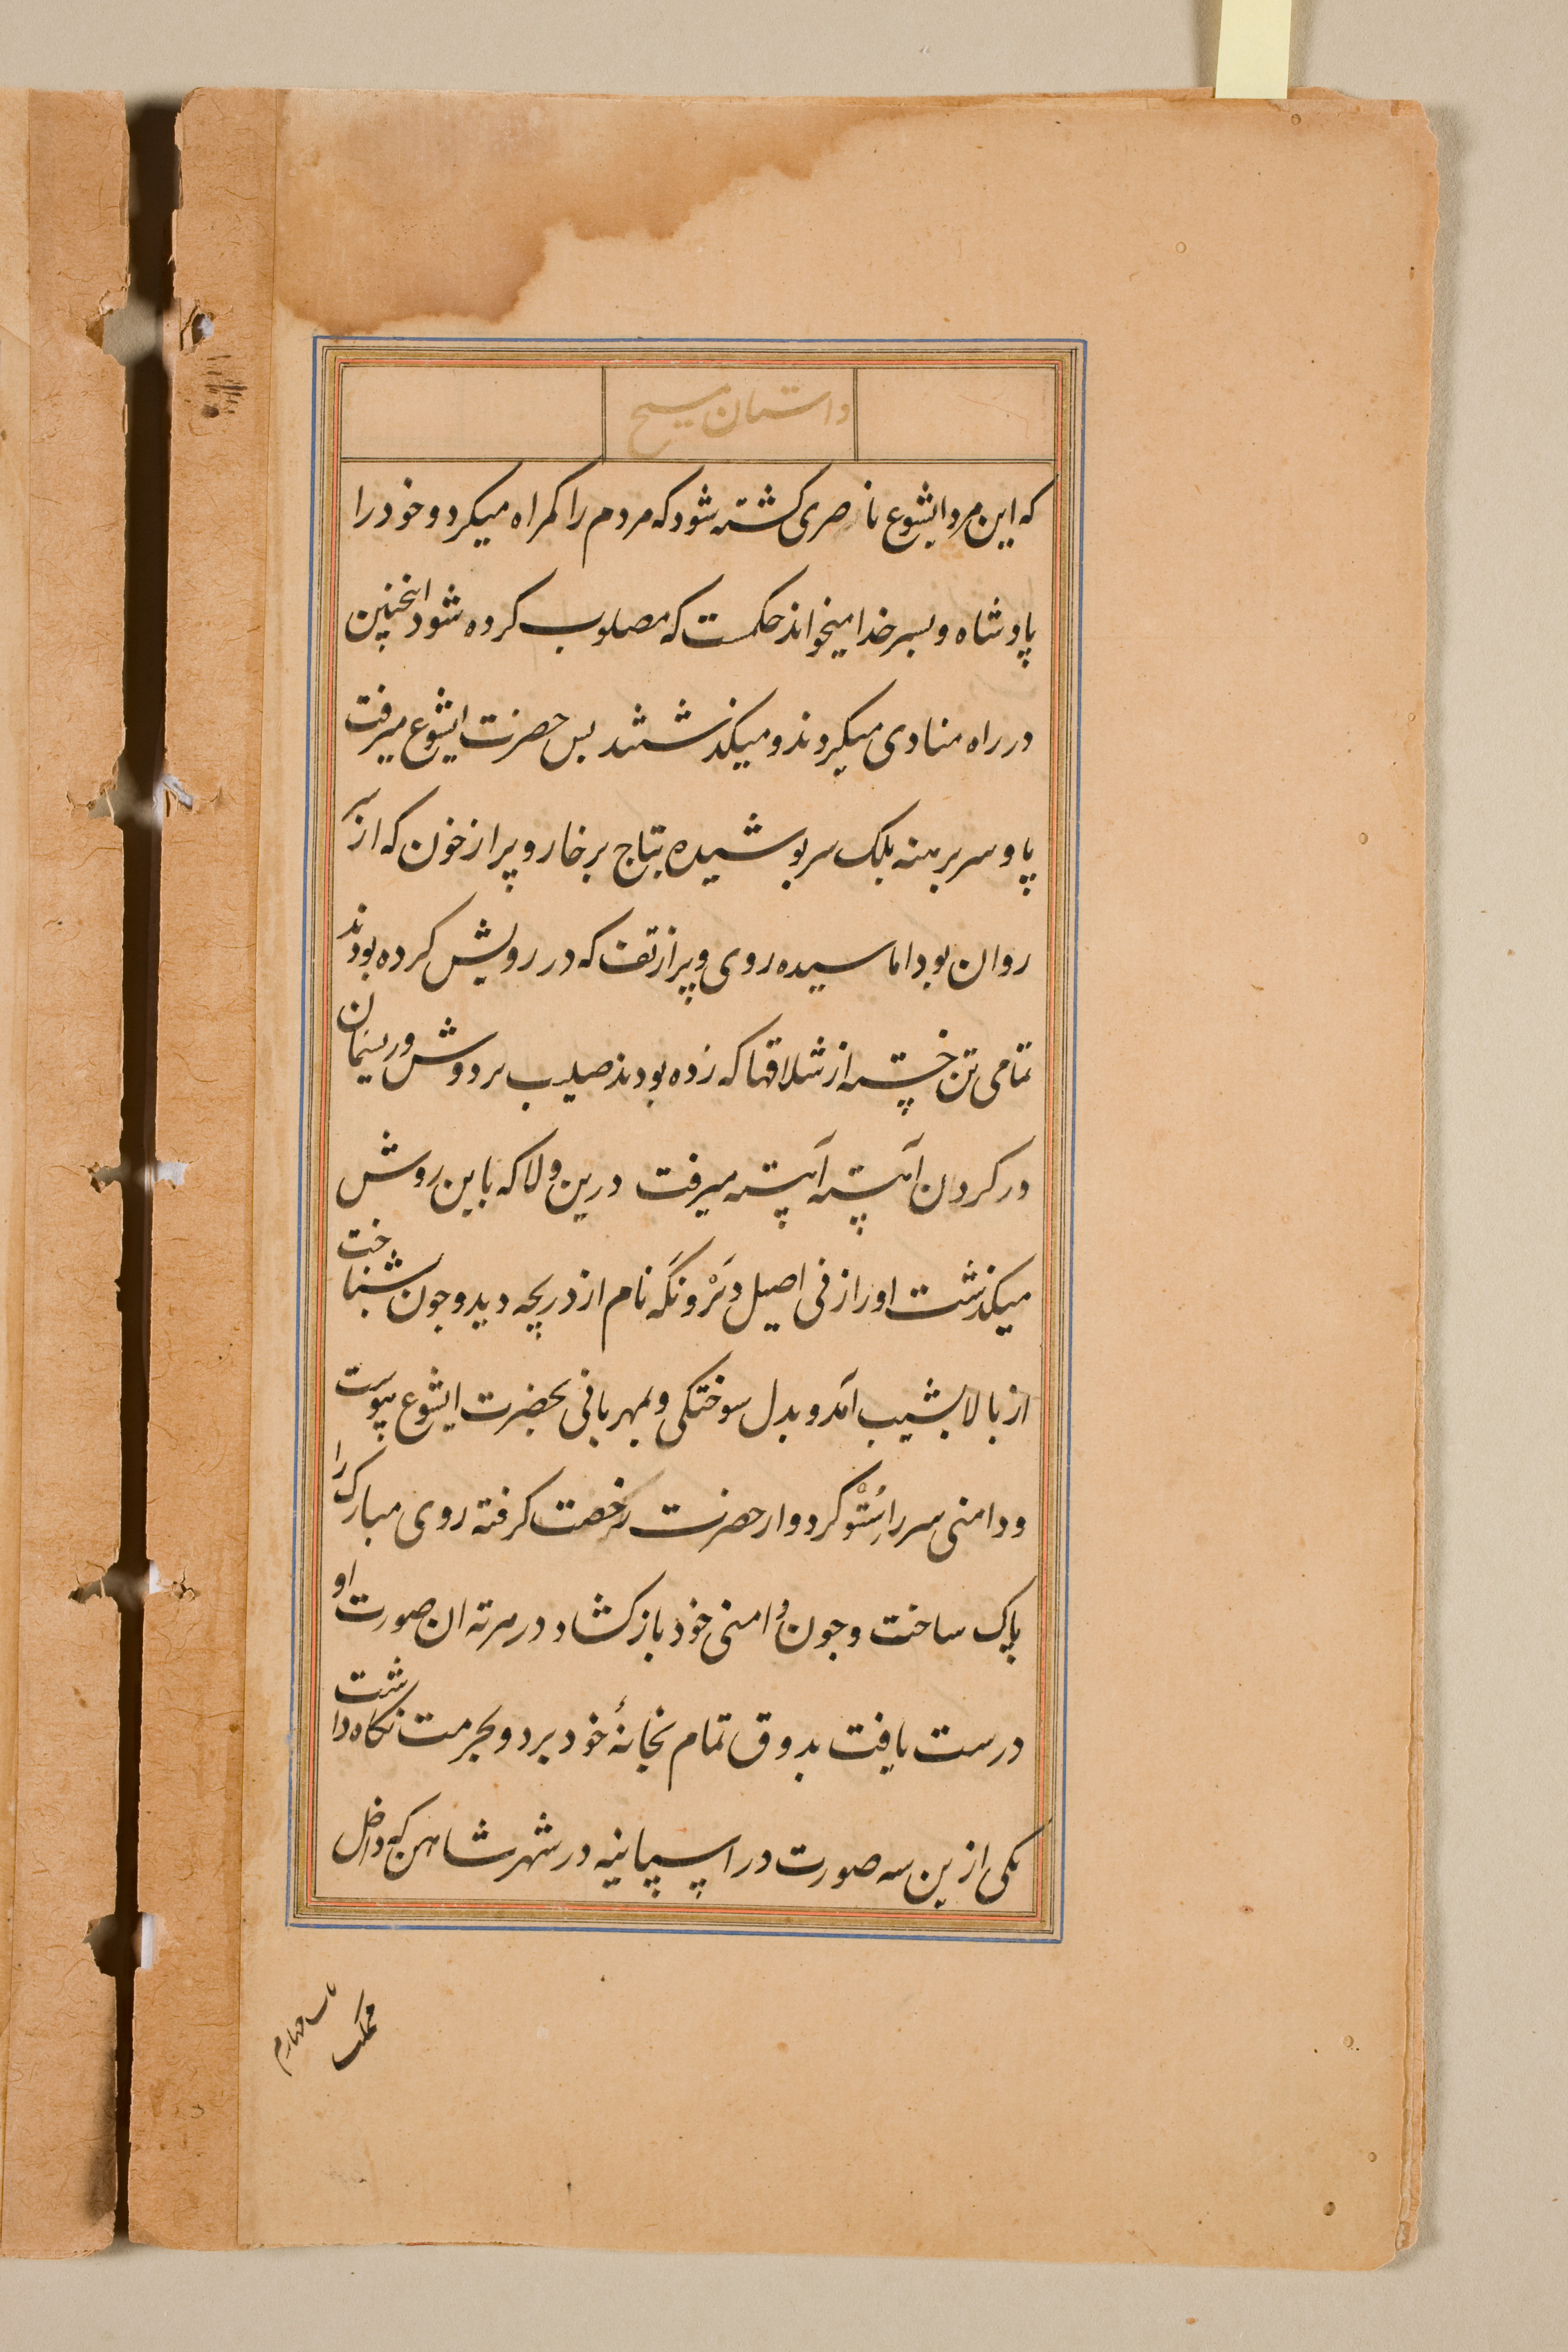 داستان مسیح
که این مرد ایشوع ناصری کشته شود که مردم را کمراه میکرد و خود را
پادشاه و بسر خدا میخواند حکمست که مصلوب کرده شود اینچنین
در راه منادی میکردند و میکذشتند بس حضرت ایشوع میرفت
پا و سر برهنه بلک سر بوشیده بتاج برخار و پر از خون که از سر
روان بود اما سیده روی و پر از تف که در رویش کرده بودند
تمامی تن خسته از شلاقها که زده بودند صلیب بر دوش و ریسمان
در کردن آهسته آهسته میرفت درین ولا که باین روش
میکذشت او را زنی اصیل وَرْونکَه نام از دریچه دید و جون شناخت
از بالا بشیب آمد و بدل سوختکی و بمهربانی بحضرت ایشوع پیوست
و دامنی سر را سُتْو کرد و از حضرت رخصت کرفته روی مبارک را
پاک ساخت و جون دامنی خود باز کشاد در سر ته ان صورت او
درست یافت بذوق تمام بخانهٔ خود برد و بحرمت نکاه داشت
یکی ازین سه صورت در اسپانیه در شهر شاهن که داخل
مملکت
باب چهارم